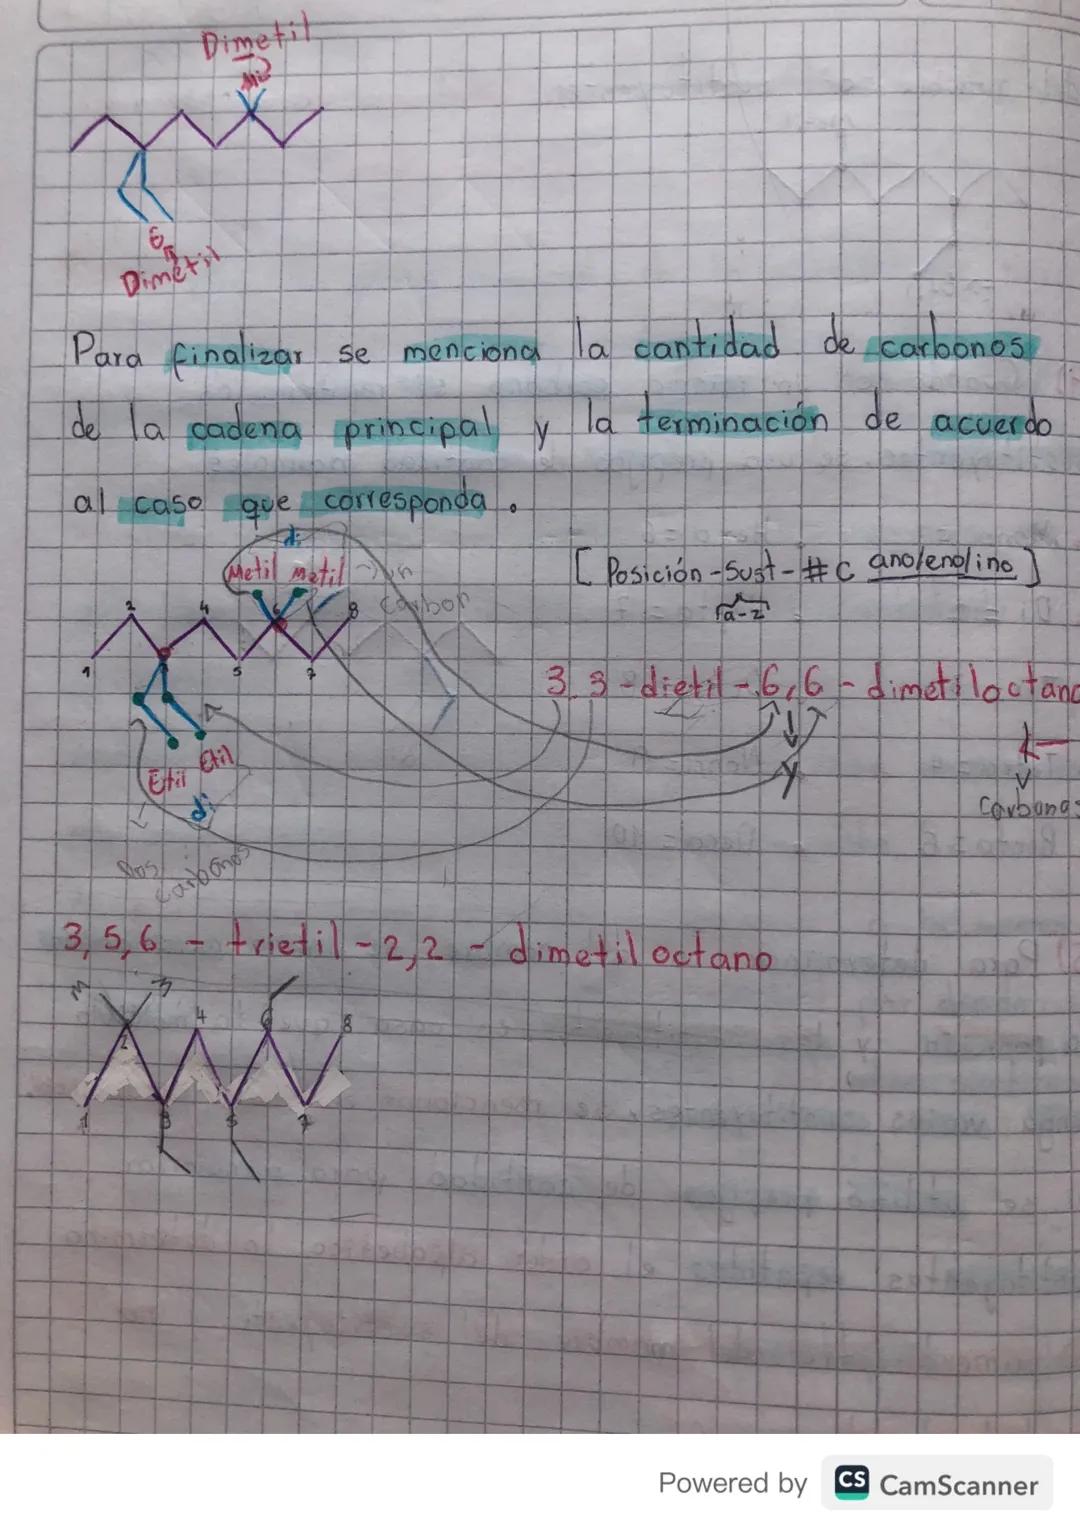 Dimetil
Dimetil
Para finalizar se menciona la cantidad de carbonos
de la cadena principal y la terminación de acuerdo
al caso que corresponda.
di
Metil Metil → un
carbon
[Posición - Sust - # C ano/eno/ino]
a-z
2 4 6 8
1 3 5 7
3,3 - dietil - 6,6 - dimetiloctano
y
Etil Etil
di
Carbonos
Dos
carbonos
3,5,6 - trietil - 2,2 - dimetiloctano
2 4 6 8
1 3 5 7
Powered by CS CamScanner